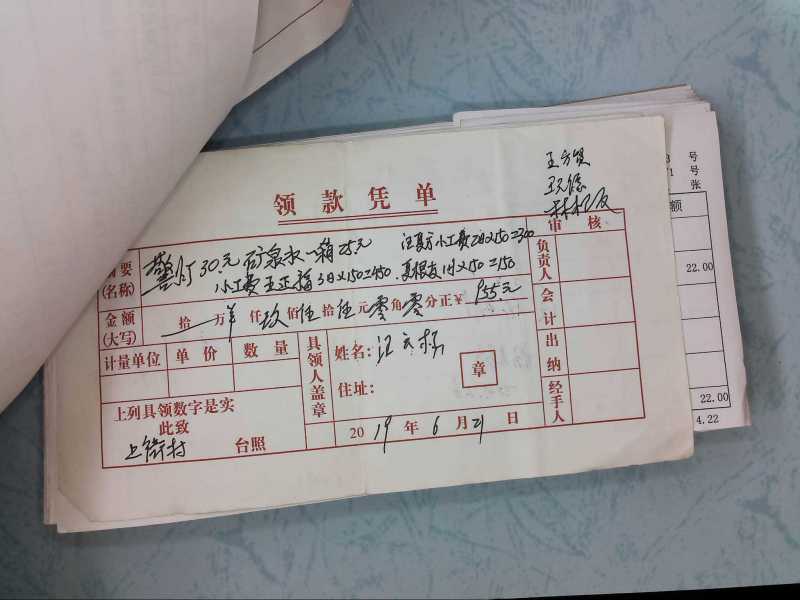 号
号
张
额
22.00
22.00
4.22
王
领款凭单
审核
摘要
(名称)
警灯30元 矿泉水一箱25元 小工费2日×150=300
小工费王正福3日×150=450 夏根友1日×150=150
金额
(大写)
拾 万 仟玖佰伍拾伍元零角零分正¥955元
计量单位 单价 数量
具领人盖章
姓名:汪
住址:
章
负责人
会计
出纳
经手人
上列具领数字是实
此致
上街村 台照
2019年6月21日